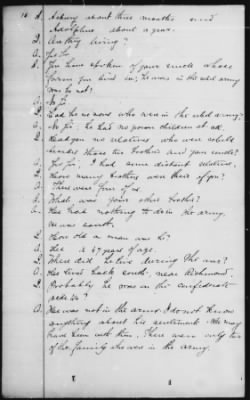 A. Asbury about three months and
Adolphus about a year.
Q. Are they living?
A. Yes Sir.
Q. You have spoken of your uncle whose
farm you lived on; he was in the rebel army
was he not?
A. No Sir.
Q. Had he no sons who were in the rebel army?
A. No Sir; he had no grown children at all.
Q. Had you no relatives who were rebels
besides these two brothers and your uncle?
A. Yes Sir; I had some distant relatives.
Q. How many brothers were there of you?
A. There were four of us.
Q. What was your other brother?
A. He had nothing to do in the army.
He was south.
Q. How old a man was he?
A. He is 47 years of age.
Q. Where did he live during the war?
A. He lived back south, near Richmond.
Q. Probably he was in the confederate
service?
A. He was not in the army. I do not know
anything about his sentiments. He may
have been with them. There were only two
of the family who were in the army.